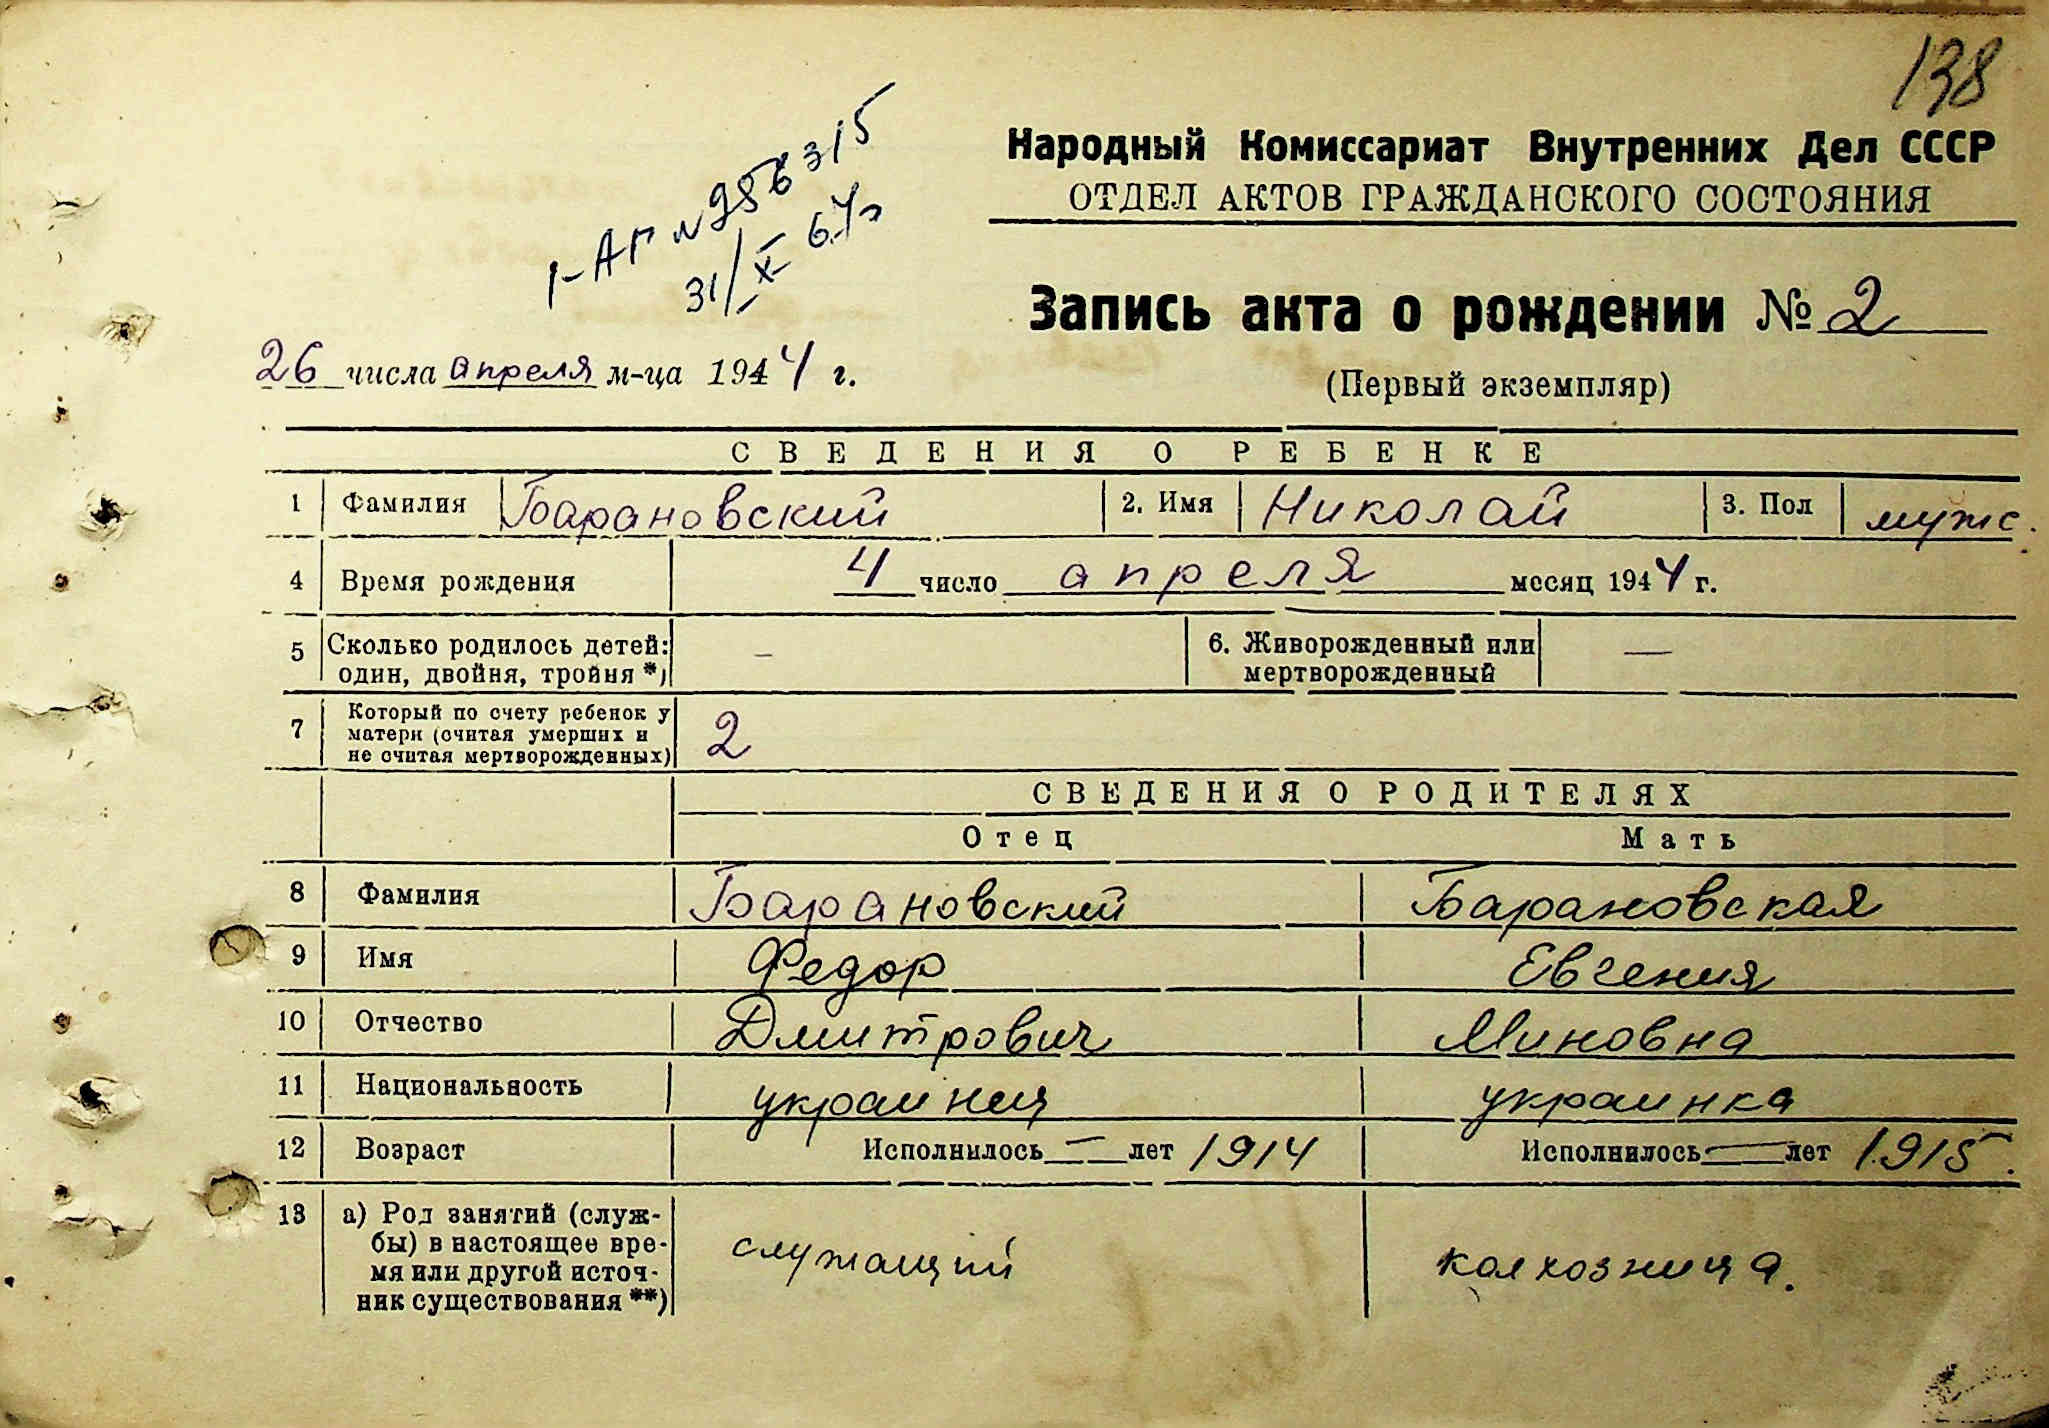 138
Народный Комиссариат Внутренних Дел СССР
ОТДЕЛ АКТОВ ГРАЖДАНСКОГО СОСТОЯНИЯ
1-АГ №986315
31/X-67г
Запись акта о рождении № 2
26 числа апреля м-ца 1944 г.
(Первый экземпляр)
СВЕДЕНИЯ О РЕБЕНКЕ
1 Фамилия Барановский 2. Имя Николай 3. Пол муж.
4 Время рождения 4 число апреля месяц 1944 г.
5 Сколько родилось детей: один, двойня, тройня *) — 6. Живорожденный или мертворожденный —
7 Который по счету ребенок у матери (считая умерших и не считая мертворожденных) 2
СВЕДЕНИЯ О РОДИТЕЛЯХ
Отец Мать
8 Фамилия Барановский Барановская
9 Имя Федор Евгения
10 Отчество Дмитрович Миновна
11 Национальность украинец украинка
12 Возраст Исполнилось — лет 1914 Исполнилось — лет 1915.
13 а) Род занятий (службы) в настоящее время или другой источник существования **) служащий колхозница.